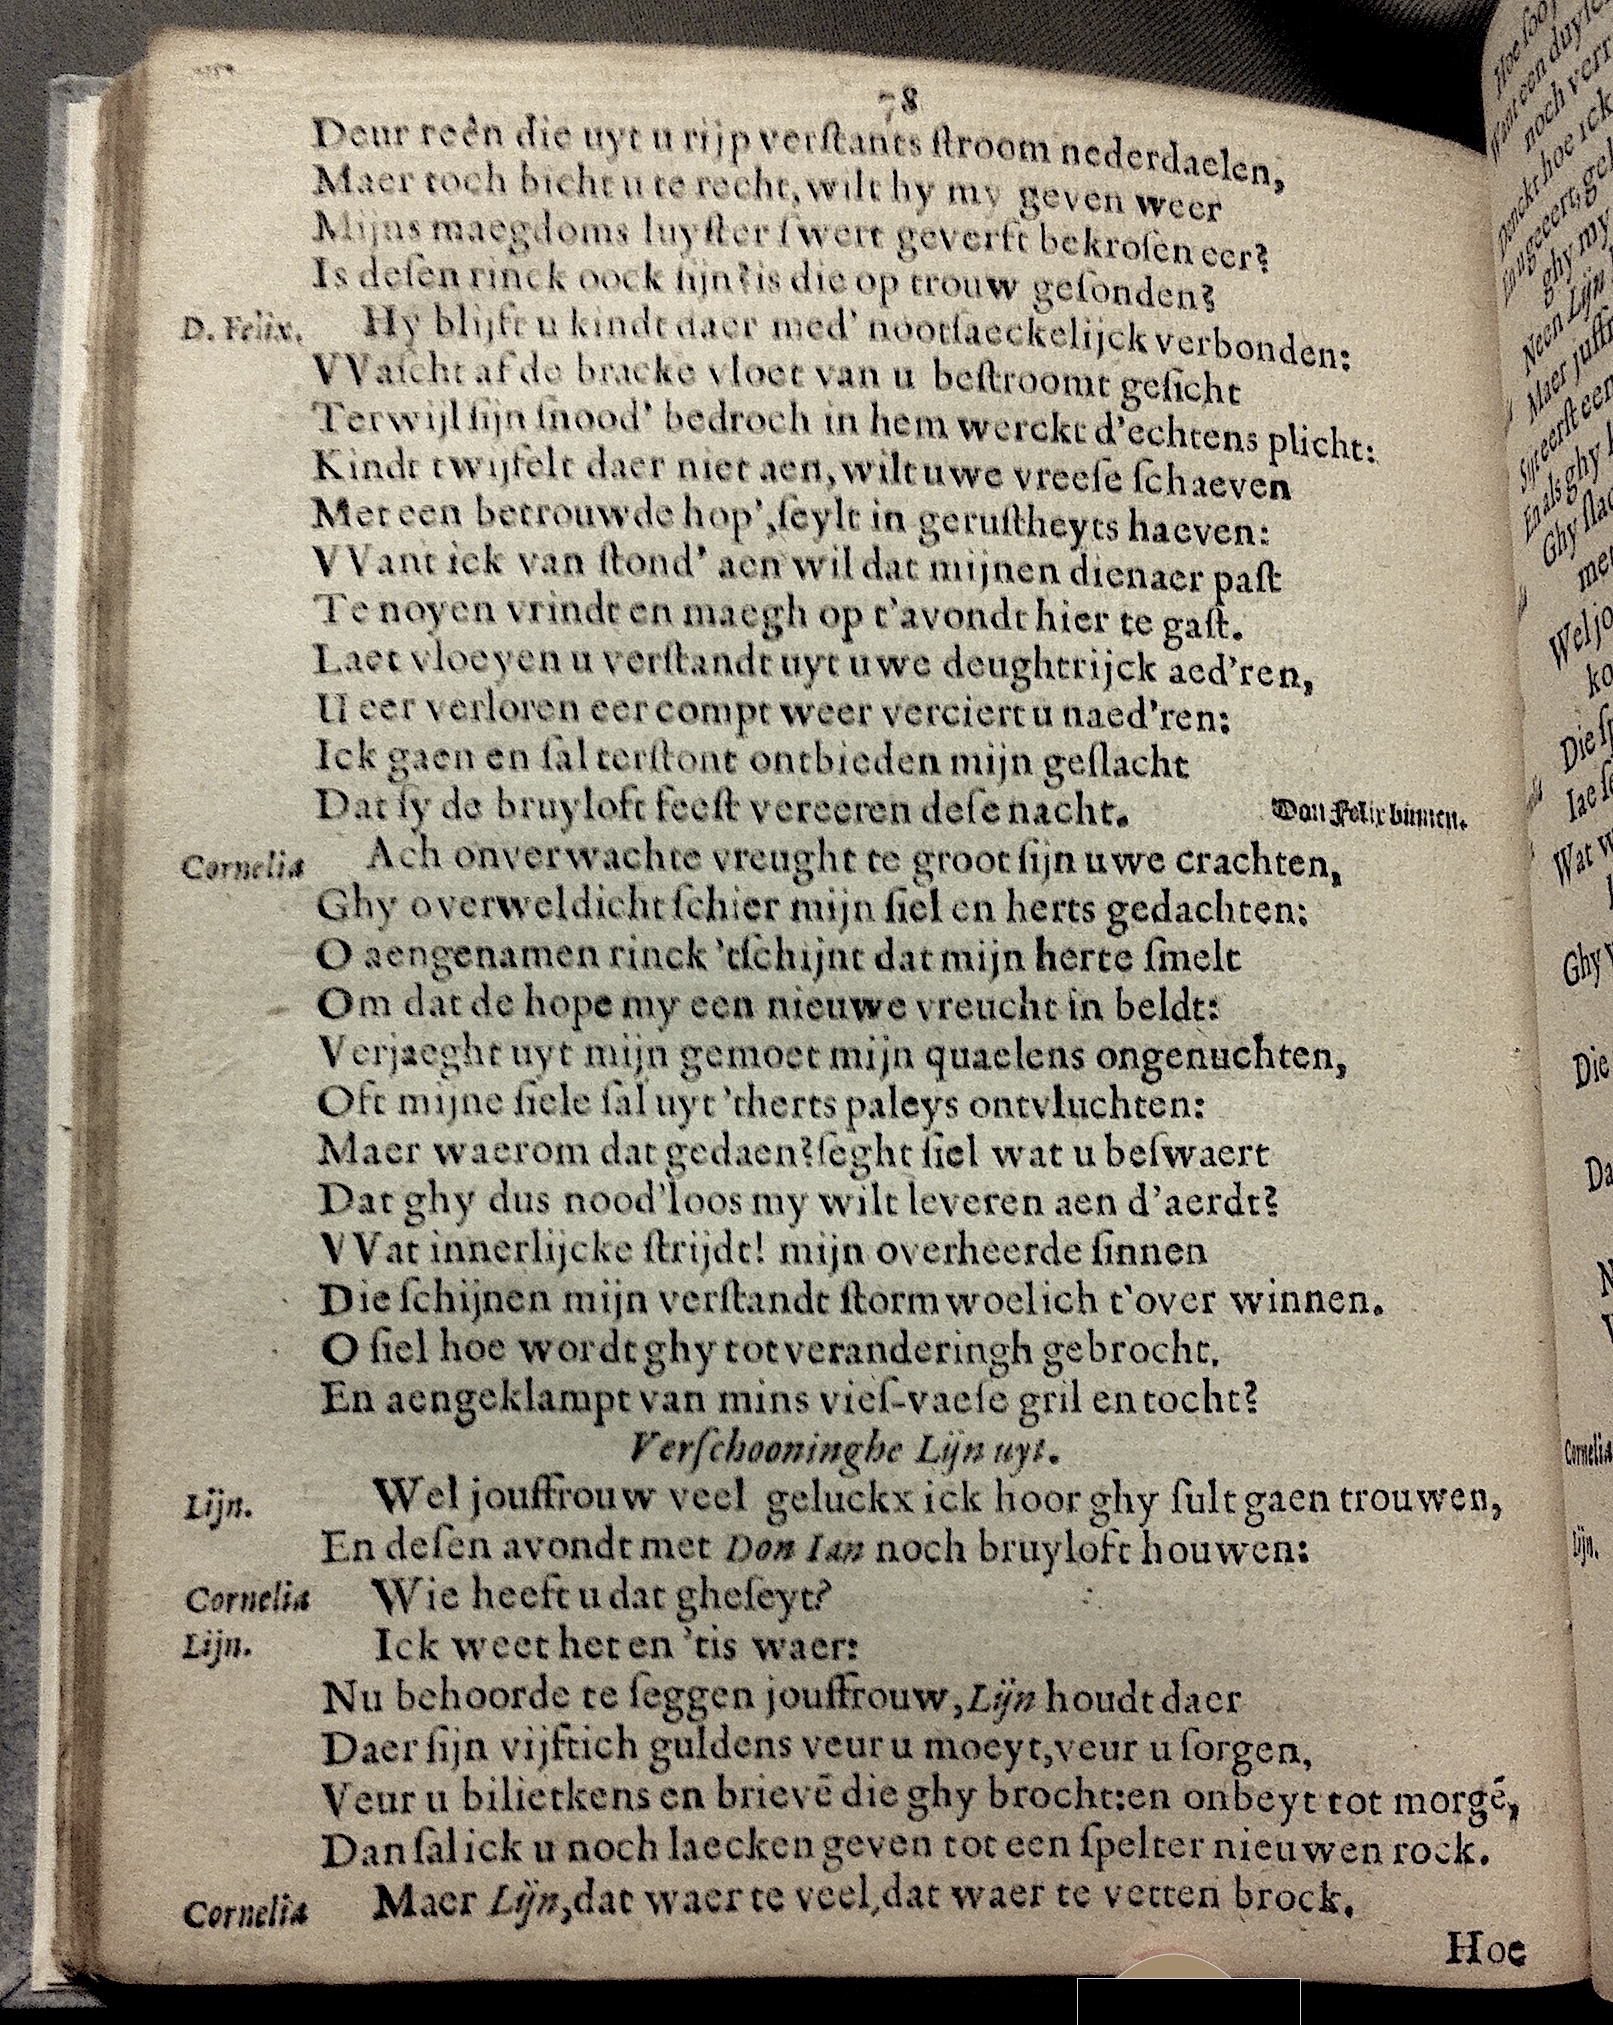 78
Deur reên die uyt u rijp verſtants ſtroom nederdaelen,
Maer toch bicht u te recht, wilt hy my geven weer
Mijns maegdoms luyſter ſwert geverft bekroſen eer?
Is deſen rinck oock ſijn? is die op trouw geſonden?
D. Felix. Hy blijft u kindt daer med' nootſaeckelijck verbonden:
VVaſcht af de bracke vloet van u beſtroomt geſicht
Terwijl ſijn ſnood' bedroch in hem werckt d'echtens plicht:
Kindt twijfelt daer niet aen, wilt uwe vreeſe ſchaeven
Met een betrouwde hop', ſeylt in geruſtheyts haeven:
VVant ick van ſtond' aen wil dat mijnen dienaer paſt
Te noyen vrindt en maegh op t'avondt hier te gaſt.
Laet vloeyen u verſtandt uyt uwe deughtrijck aed'ren,
U eer verloren eer compt weer verciert u naed'ren:
Ick gaen en ſal terſtont ontbieden mijn geſlacht
Dat ſy de bruyloft feeſt vereeren deſe nacht. Don Felix binnen.
Cornelia Ach onverwachte vreught te groot ſijn uwe crachten,
Ghy overweldicht ſchier mijn ſiel en herts gedachten:
O aengenamen rinck 'tſchijnt dat mijn herte ſmelt
Om dat de hope my een nieuwe vreucht in beldt:
Verjaeght uyt mijn gemoet mijn quaelens ongenuchten,
Oft mijne ſiele ſal uyt 'therts paleys ontvluchten:
Maer waerom dat gedaen? ſeght ſiel wat u beſwaert
Dat ghy dus nood'loos my wilt leveren aen d'aerdt?
VVat innerlijcke ſtrijdt! mijn overheerde ſinnen
Die ſchijnen mijn verſtandt ſtormwoelich t'over winnen.
O ſiel hoe wordt ghy tot veranderingh gebrocht,
En aengeklampt van mins vieſ-vaeſe gril en tocht?
Verſchooninghe Lijn uyt.
Lijn. Wel jouffrouw veel geluckx ick hoor ghy ſult gaen trouwen,
En deſen avondt met Don Ian noch bruyloft houwen:
Cornelia Wie heeft u dat gheſeyt?
Lijn. Ick weet het en 'tis waer:
Nu behoorde te ſeggen jouffrouw, Lijn houdt daer
Daer ſijn vijftich guldens veur u moeyt, veur u ſorgen,
Veur u bilietkens en brievē die ghy brocht: en onbeyt tot morgē,
Dan ſal ick u noch laecken geven tot een ſpelter nieuwen rock.
Cornelia Maer Lijn, dat waer te veel, dat waer te vetten brock.
Hoe